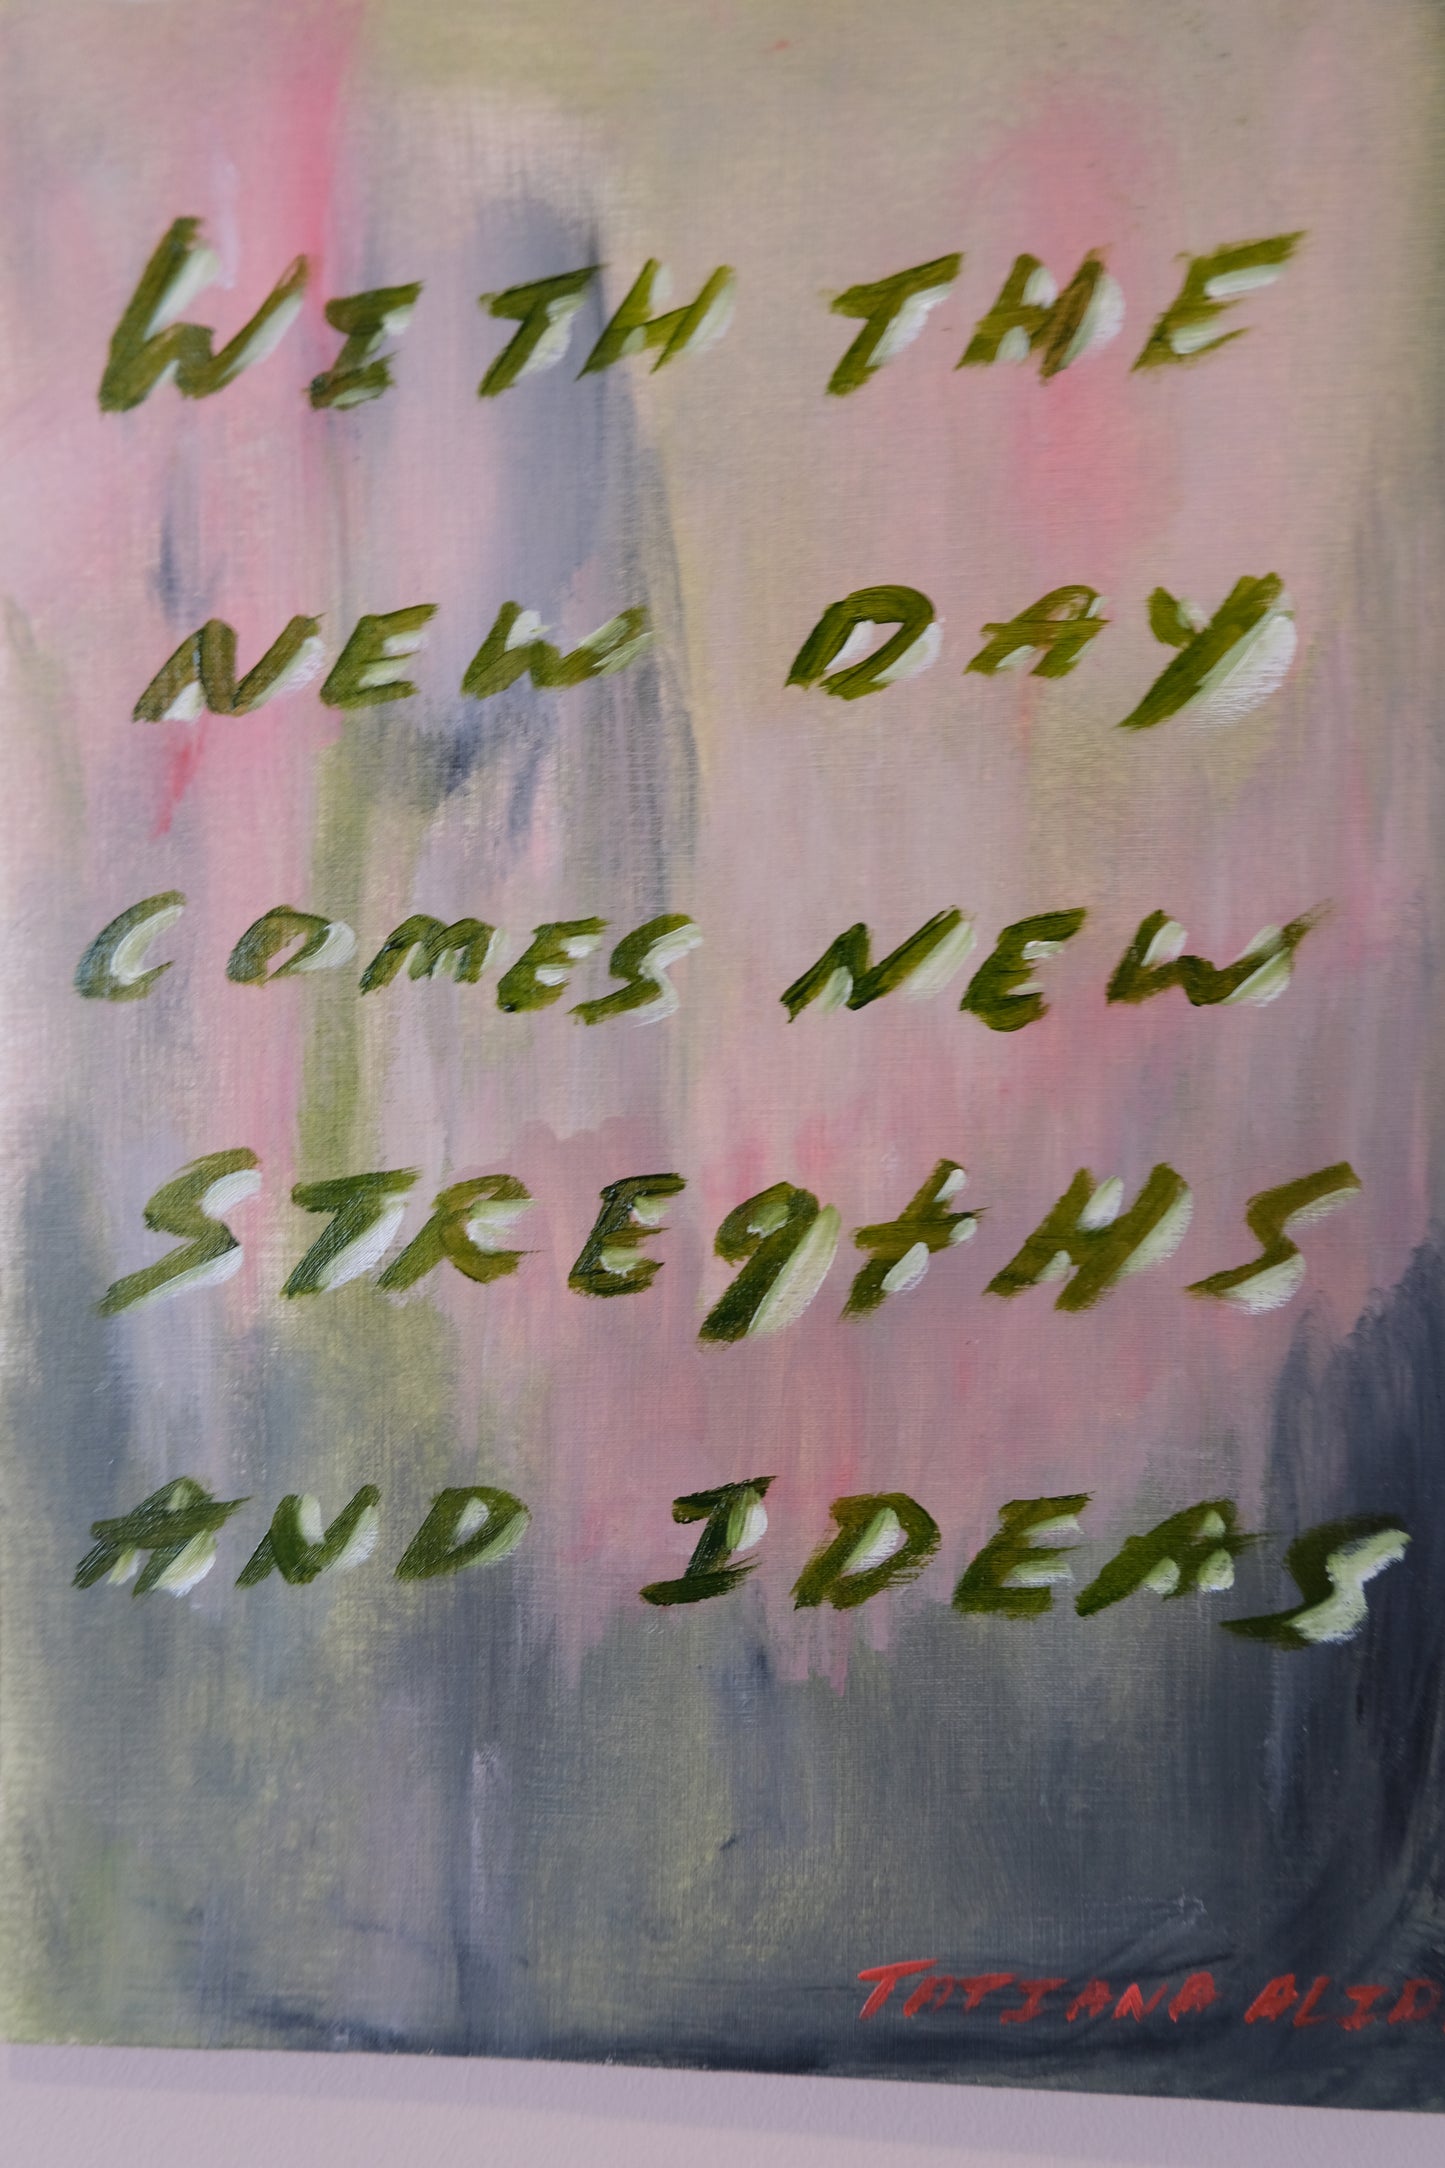 WITH THE
NEW DAY
COMES NEW
STREgtHS
AND IDEAS
TATIANA